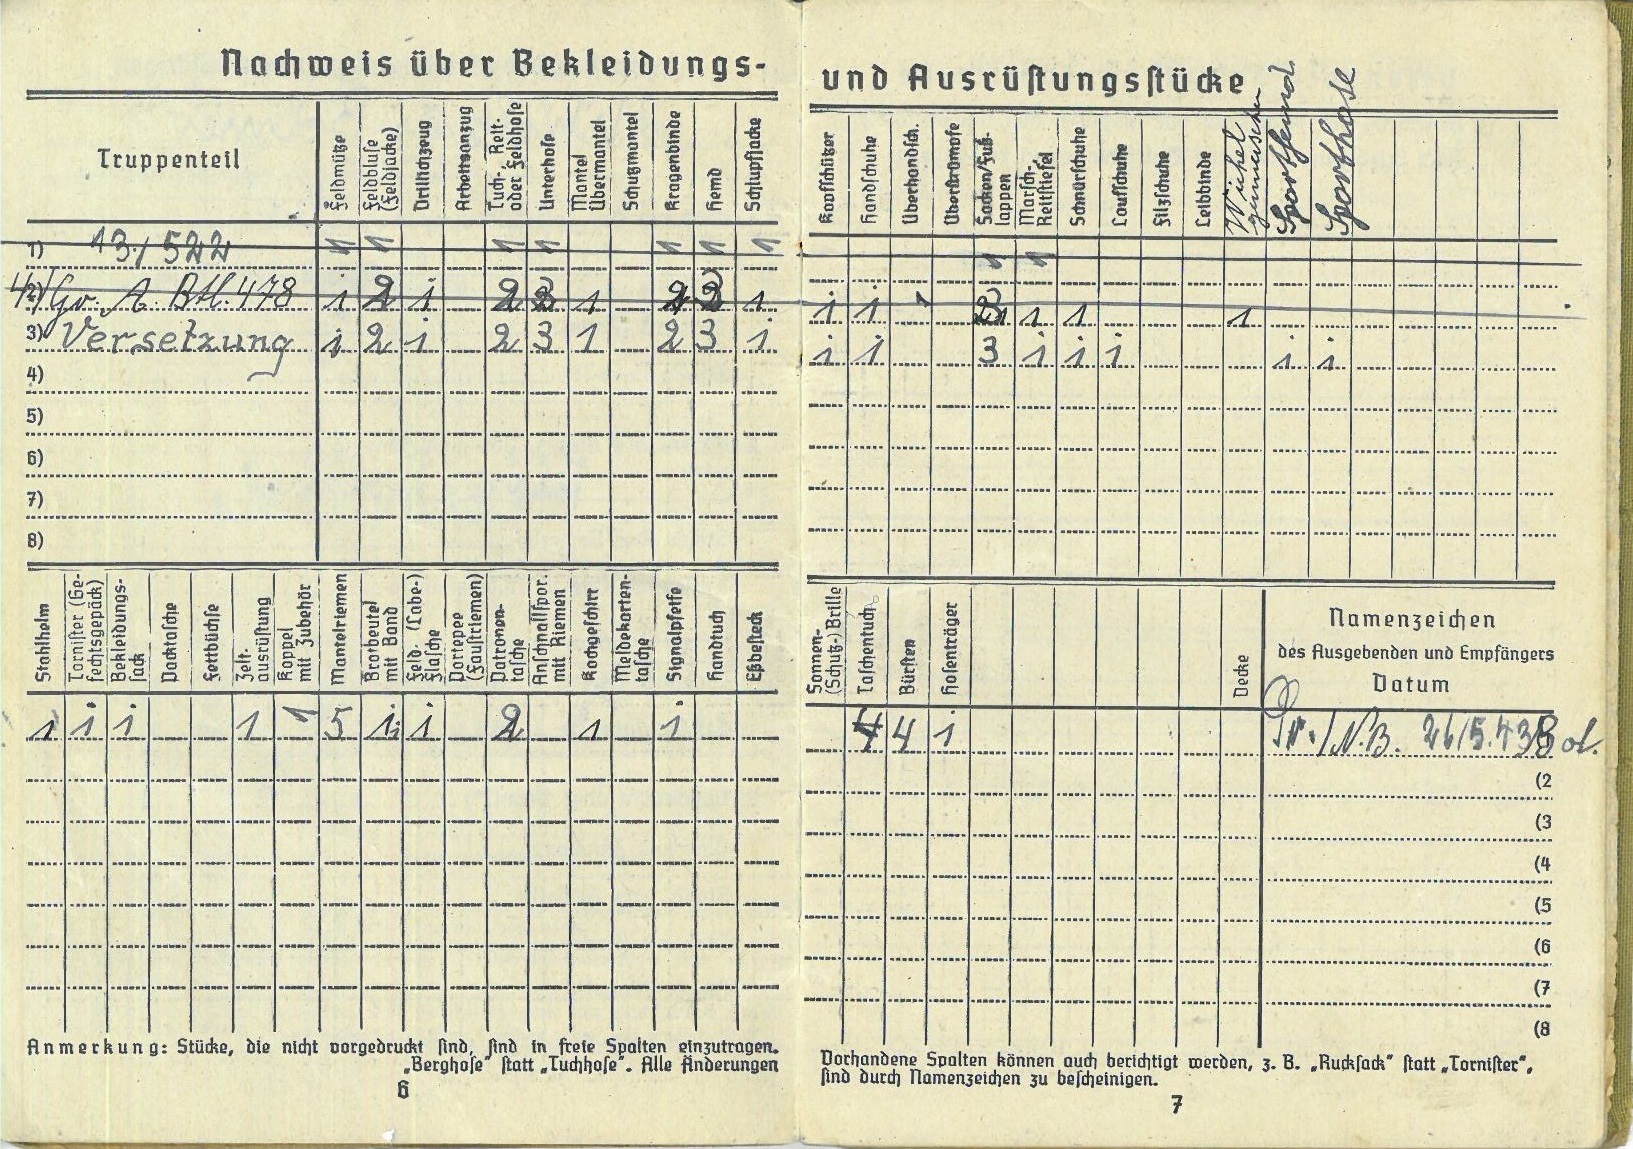 Nachweis über Bekleidungs-
Truppenteil
Feldmütze
Feldbluse (Feldjacke)
Drillichzeug
Arbeitsanzug
Tuch-, Reit- oder Feldhose
Unterhose
Mantel Übermantel
Schutzmantel
Kragenbinde
Hemd
Schlupfjacke
1) 13./522 1 1 1 1 1 1 1
2) A. Btl. 478 1 2 1 2 3 1 2 3 1
3) Versetzung 1 2 1 2 3 1 2 3 1
4)
5)
6)
7)
8)
Stahlhelm
Tornister (Ge-fechtsgepäck)
Bekleidungs-sack
Packtasche
Fettbüchse
Zelt-ausrüstung
Koppel mit Zubehör
Mantelriemen
Brotbeutel mit Band
Feld- (Labe-) Flasche
Portepee (Faustriemen)
Patronen-tasche
Anschnallspor. mit Riemen
Kochgeschirr
Meldekarten-tasche
Signalpfeife
Handtuch
Eßbesteck
1 1 1 1 1 5 1 1 2 1 1
Anmerkung: Stücke, die nicht vorgedruckt sind, sind in freie Spalten einzutragen.
„Berghose" statt „Tuchhose". Alle Änderungen
6
und Ausrüstungsstücke
Kopfschützer
Handschuhe
Überhandsch.
Überstrümpfe
Socken/Fuß-lappen
Marsch-Reitstiefel
Schnürschuhe
Laufschuhe
Filzschuhe
Leibbinde
Sporthemd
Sporthose
1 1
1 1 1 1 1 1
1 1 3 1 1 1 1 1
Sonnen-(Schutz-) Brille
Taschentuch
Bürsten
Hosenträger
Decke
Namenzeichen
des Ausgebenden und Empfängers
Datum
4 4 1 /N.B. 26/5.43
(2
(3
(4
(5
(6
(7
(8
Vorhandene Spalten können auch berichtigt werden, z. B. „Rucksack" statt „Tornister",
sind durch Namenzeichen zu bescheinigen.
7